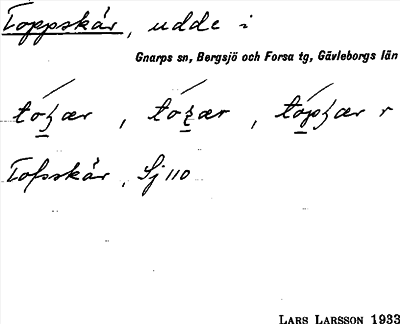 Toppskär, udde i
Gnarps sn, Bergsjö och Forsa tg, Gävleborgs län
Tofsskär, Sj 110
LARS LARSSON 1933